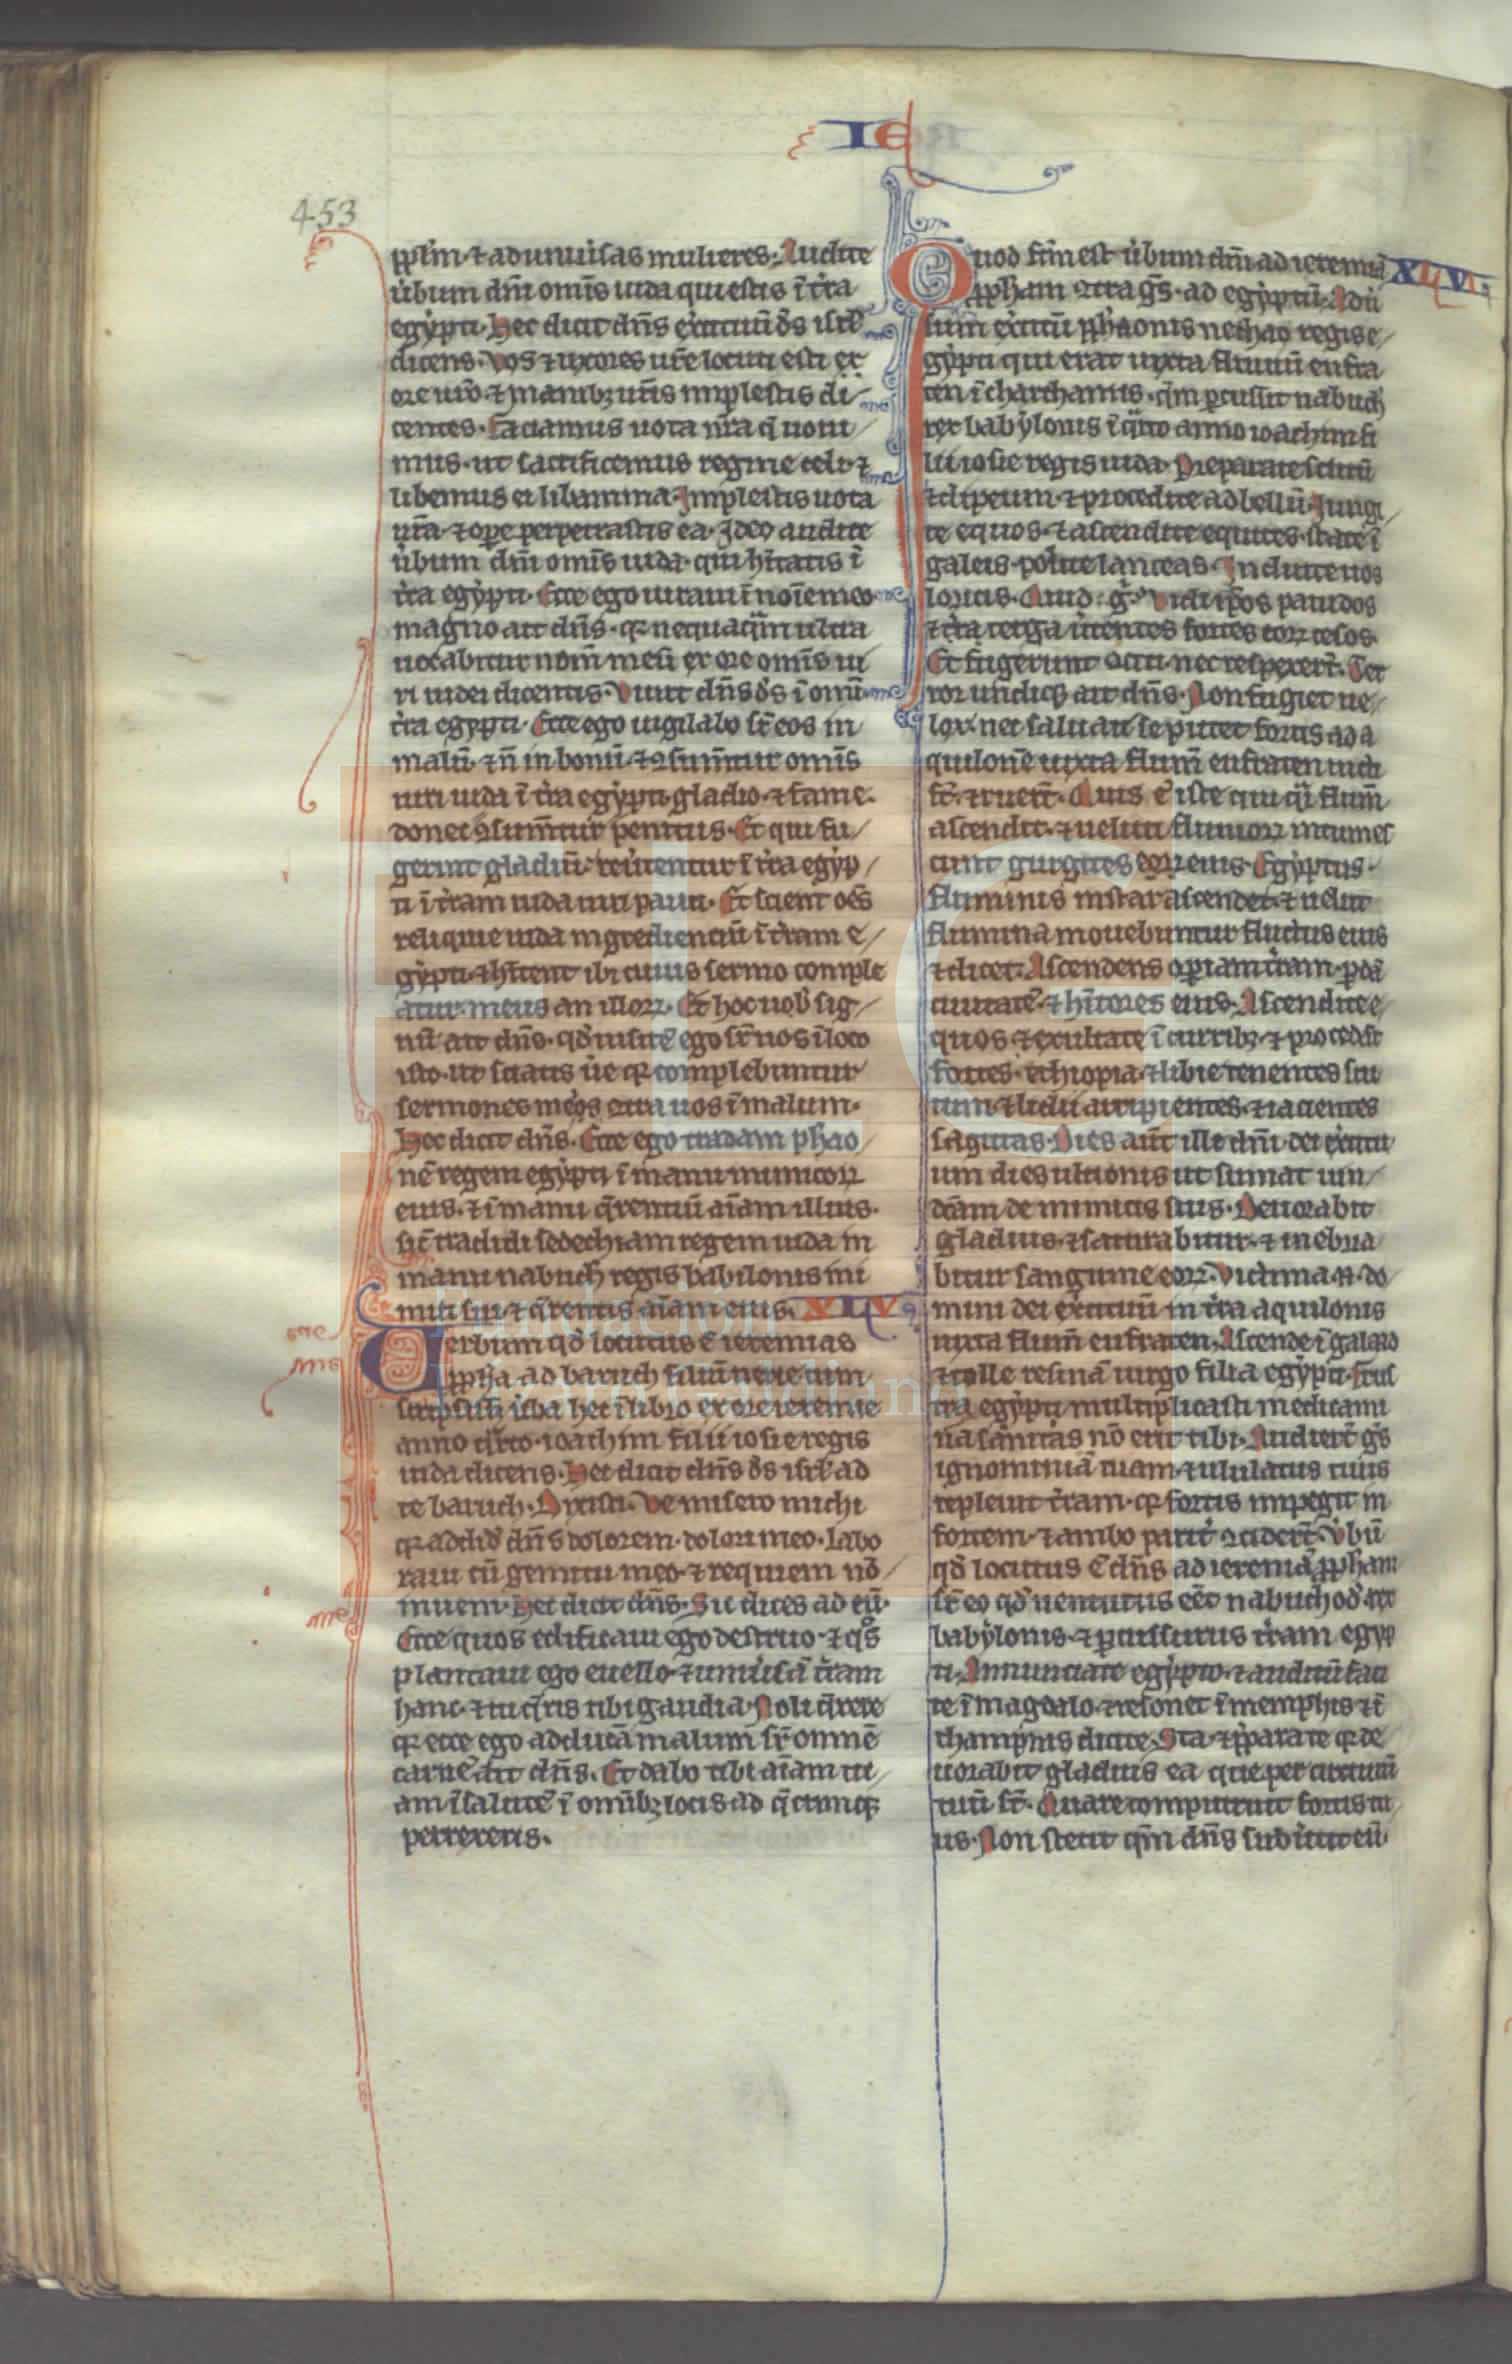 IE
453
pplm̄ · ⁊ ad uniũsas mulieres. Audite
ũbum dn̄i omīs iuda qui estis ī tr̃a
egypti. Hec dicit dn̄s ex̃cituū d̄s isrl̃
dicens. Vos ⁊ uxores ur̃e locuti estis
ore ur̃o ⁊ manibꝫ ur̃is implestis di/
centes. Faciamus uota nr̃a q̄ uoui/
mus. ut sacrificemus regine celi. ⁊
libemus ei libamina. Implestis uota
ur̃a. ⁊ oꝑe perpetrastis ea. Ideo audite
ũbum dn̄i omīs iuda. qui hītatis ī
tr̃a egypti. Ecce ego iuraui ī noīe meo
magno ait dn̄s. qꝛ nequaq̃m ultra
uocabitur nom̄ meū ex ore omīs ui/
ri iudei dicentis. Viuit dn̄s d̄s ī omī
tr̃a egypti. Ecce ego uigilabo sr̃ eos in
malū. ⁊ n̄ in bonū. ⁊ ꝯsumtur omīs
uiri iuda ī tr̃a egypti gladio. ⁊ fame.
donec ꝯsumtur penitus. Et qui fu/
gerint gladiū. reũtentur ī tr̃a egyp/
ti ī tr̃am iuda uiri pauci. Et scient oēs
reliquie iuda ingredientiū ī tr̃am e/
gypti. ⁊ hītent ibi cuius sermo comple
atur. meus an illoꝝ. Et hoc uob̃ sig/
nū ait dn̄s. qd̃ uisitē ego sr̃ uos ī loco
isto. ut sciatis ũe qꝛ complebuntur
sermones mei ꝯtra uos ī malum.
Hec dicit dn̄s. Ecce ego tradam phao/
nē regem egypti ī manu inimicoꝝ
eius. ⁊ ī manu q̄rentiū aīam illius.
sic̃ tradidi sedechiam regem iuda in
manu nabuch̃ regis babilonis ini
mici sui. ⁊ q̄rentis aīam eius. XLV
Verbum qd̃ locutus ē ieremias
ꝓpha ad baruch filiū nerie cum
scripsiss̃ ũba hec ī libro ex ore ieremie
anno q̃rto. ioachim filii iosie regis
iuda dicens. Hec dicit dn̄s d̄s isrl̃ ad
te baruch. Dixisti. Ve misero michi
qꝛ addid̃ dn̄s dolorem. dolori meo. Labo
raui cū gemitu meo. ⁊ requiem nō/
inueni. Hec dicit dn̄s. Sic dices ad eū.
Ecce quos edificaui ego destruo. ⁊ qo̅s
plantaui ego euello. ⁊ uniũsā tr̃am
hanc. ⁊ tu q̄ris tibi gaudia. Noli q̄rere
qꝛ ecce ego adducā malum sr̃ omnē
carnē ait dn̄s. Et dabo tibi aīam tu/
am ī salutē ī omībꝫ locis ad q̄cumqꝫ
perrexeris.
Quod fc̃m est ũbum dn̄i ad ieremiā XLVI.
ꝓpham ꝯtra gēs. ad egyptū. Adū
sum ex̃citū pharaonis nechao regis e/
gypti qui erat iuxta fluuiū eufra
ten ī charchamis. q̃m ꝑcussit nabuch̃
rex babylonis ī q̃rto anno ioachim fi
lii iosie regis iuda. Preparate scutū
⁊ clipeum. ⁊ procedite ad bellū. Iungi/
te equos. ⁊ ascendite equites. state ī
galeis. polite lanceas. Induite uos
loricis. Quid g̃. Vidi ip̃os pauidos
⁊ tr̃a terga ũtentes fortes eoꝝ cesos.
Et fugerunt ꝯciti. nec respexer̃t. Ter
ror undiqꝫ ait dn̄s. Non fugiet ue/
lox. nec saluari se putet fortis ad a
quilonē iuxta flum̄ eufraten uicti
st̃. ⁊ ruer̃t. Quis ē iste qui q̃i flum̄
ascendit. ⁊ ueluti fluuioꝝ intumes
cunt gurgites eoꝝ eius. Egyptus.
fluminis instar ascendet. ⁊ uelut
flumina mouebuntur fluctus eius
⁊ dicet. Ascendens oꝑiam tr̃am. ꝑdā
ciuitatē. ⁊ hītores eius. Ascendite e/
quos ⁊ exultate ī curribꝫ. ⁊ procedāt
fortes. ethiopia. ⁊ libie tenentes scu
tum. ⁊ lidii arripientes. ⁊ iacientes
sagittas. Dies aut̃ ille dn̄i dei ex̃citu/
um dies ultionis ut sumat uin/
dc̃am de inimicis suis. Deuorabit
gladius. ⁊ saturabitur. ⁊ inebria/
bitur sanguine eoꝝ. Victima .n. do/
mini dei ex̃cituū in tr̃a aquilonis
iuxta flum̄ eufraten. Ascende ī galaad
⁊ tolle resinā uirgo filia egypti. frus
tra egypti multiplicasti medicami
na sanitas nō erit tibi. Audier̃t gēs
ignominiā tuam. ⁊ ululatus tuus
repleuit tr̃am. qꝛ fortis impegit in
fortem. ⁊ ambo parit̃ ꝯcider̃t. Ṽbū
qd̃ locutus ē dn̄s ad ieremiā ꝓpham
sr̃ eo qd̃ uenturus eēt nabuchod̃. rex
babylonis. ⁊ ꝑcussurus tr̃am egyp
ti. Annunciate egypto. ⁊ auditū faci
te ī magdalo. ⁊ resonet ī memphis ⁊ ī
thamphis dicite. Sta. ⁊ p̃para te qꝛ de/
uorabit gladius ea que per circuitū
tuū st̃. Quare computruit fortis tu/
us. Non stetit q̃m dn̄s subũtit eū.
FLG
Fundación
Lázaro Galdiano